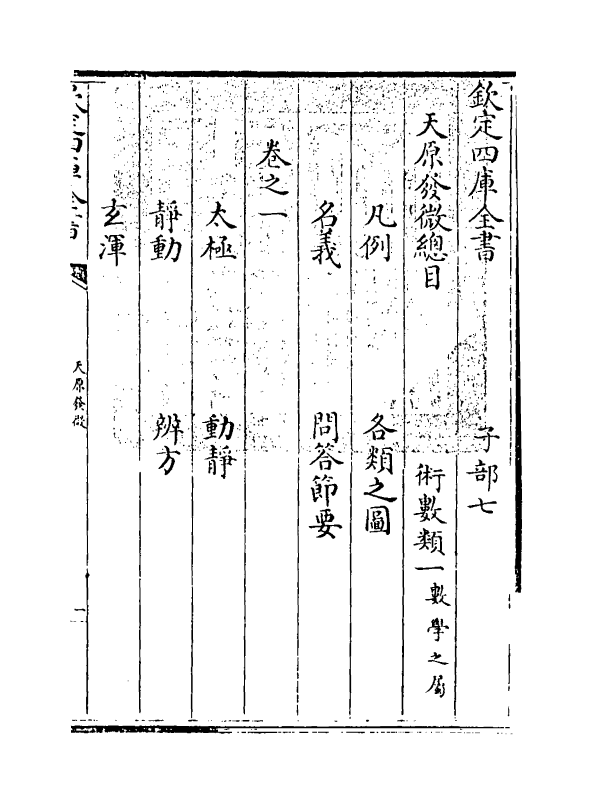 欽定四庫全書 子部七
天原發微總目 術數類一數學之屬
凡例 各類之圖
名義 問答節要
卷之一
太極 動靜
靜動 辨方
玄渾
欽定四庫全書 天原發微 一